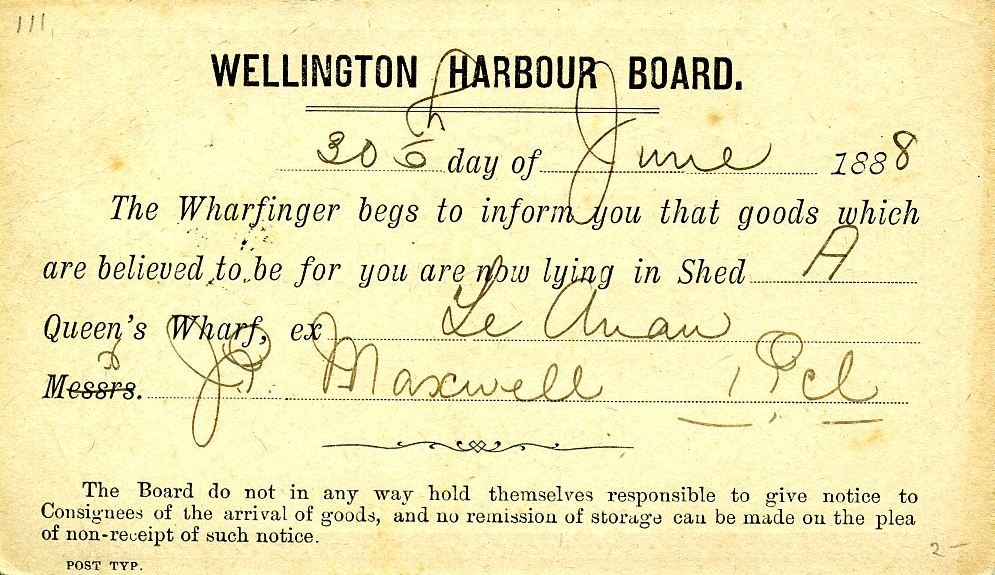 111
WELLINGTON HARBOUR BOARD.
30th day of June 1888
The Wharfinger begs to inform you that goods which
are believed to be for you are now lying in Shed A
Queen's Wharf, ex Te Anau
Messrs. J.P. Maxwell 1 Pcl
The Board do not in any way hold themselves responsible to give notice to
Consignees of the arrival of goods, and no remission of storage can be made on the plea
of non-receipt of such notice.
POST TYP.
2-